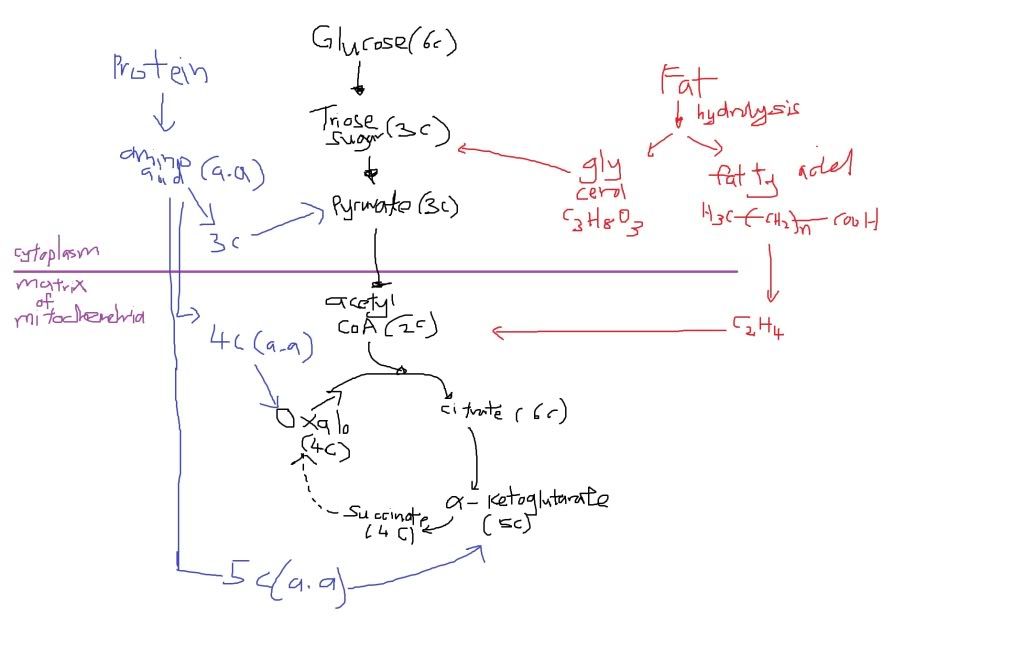 Glucose (6c)
Protein
Fat
hydrolysis
Triose
sugar (3c)
amino
acid (a.a)
gly
cerol
C3H8O3
fatty acid
H3C-(-CH2)n- COOH
Pyruvate (3c)
3c
cytoplasm
matrix
of
mitochondria
acetyl
CoA (2c)
C2H4
4c (a.a)
Oxalo
(4C)
citrate (6c)
α- Ketoglutarate
(5c)
Succinate
(4C)
5c (a.a)